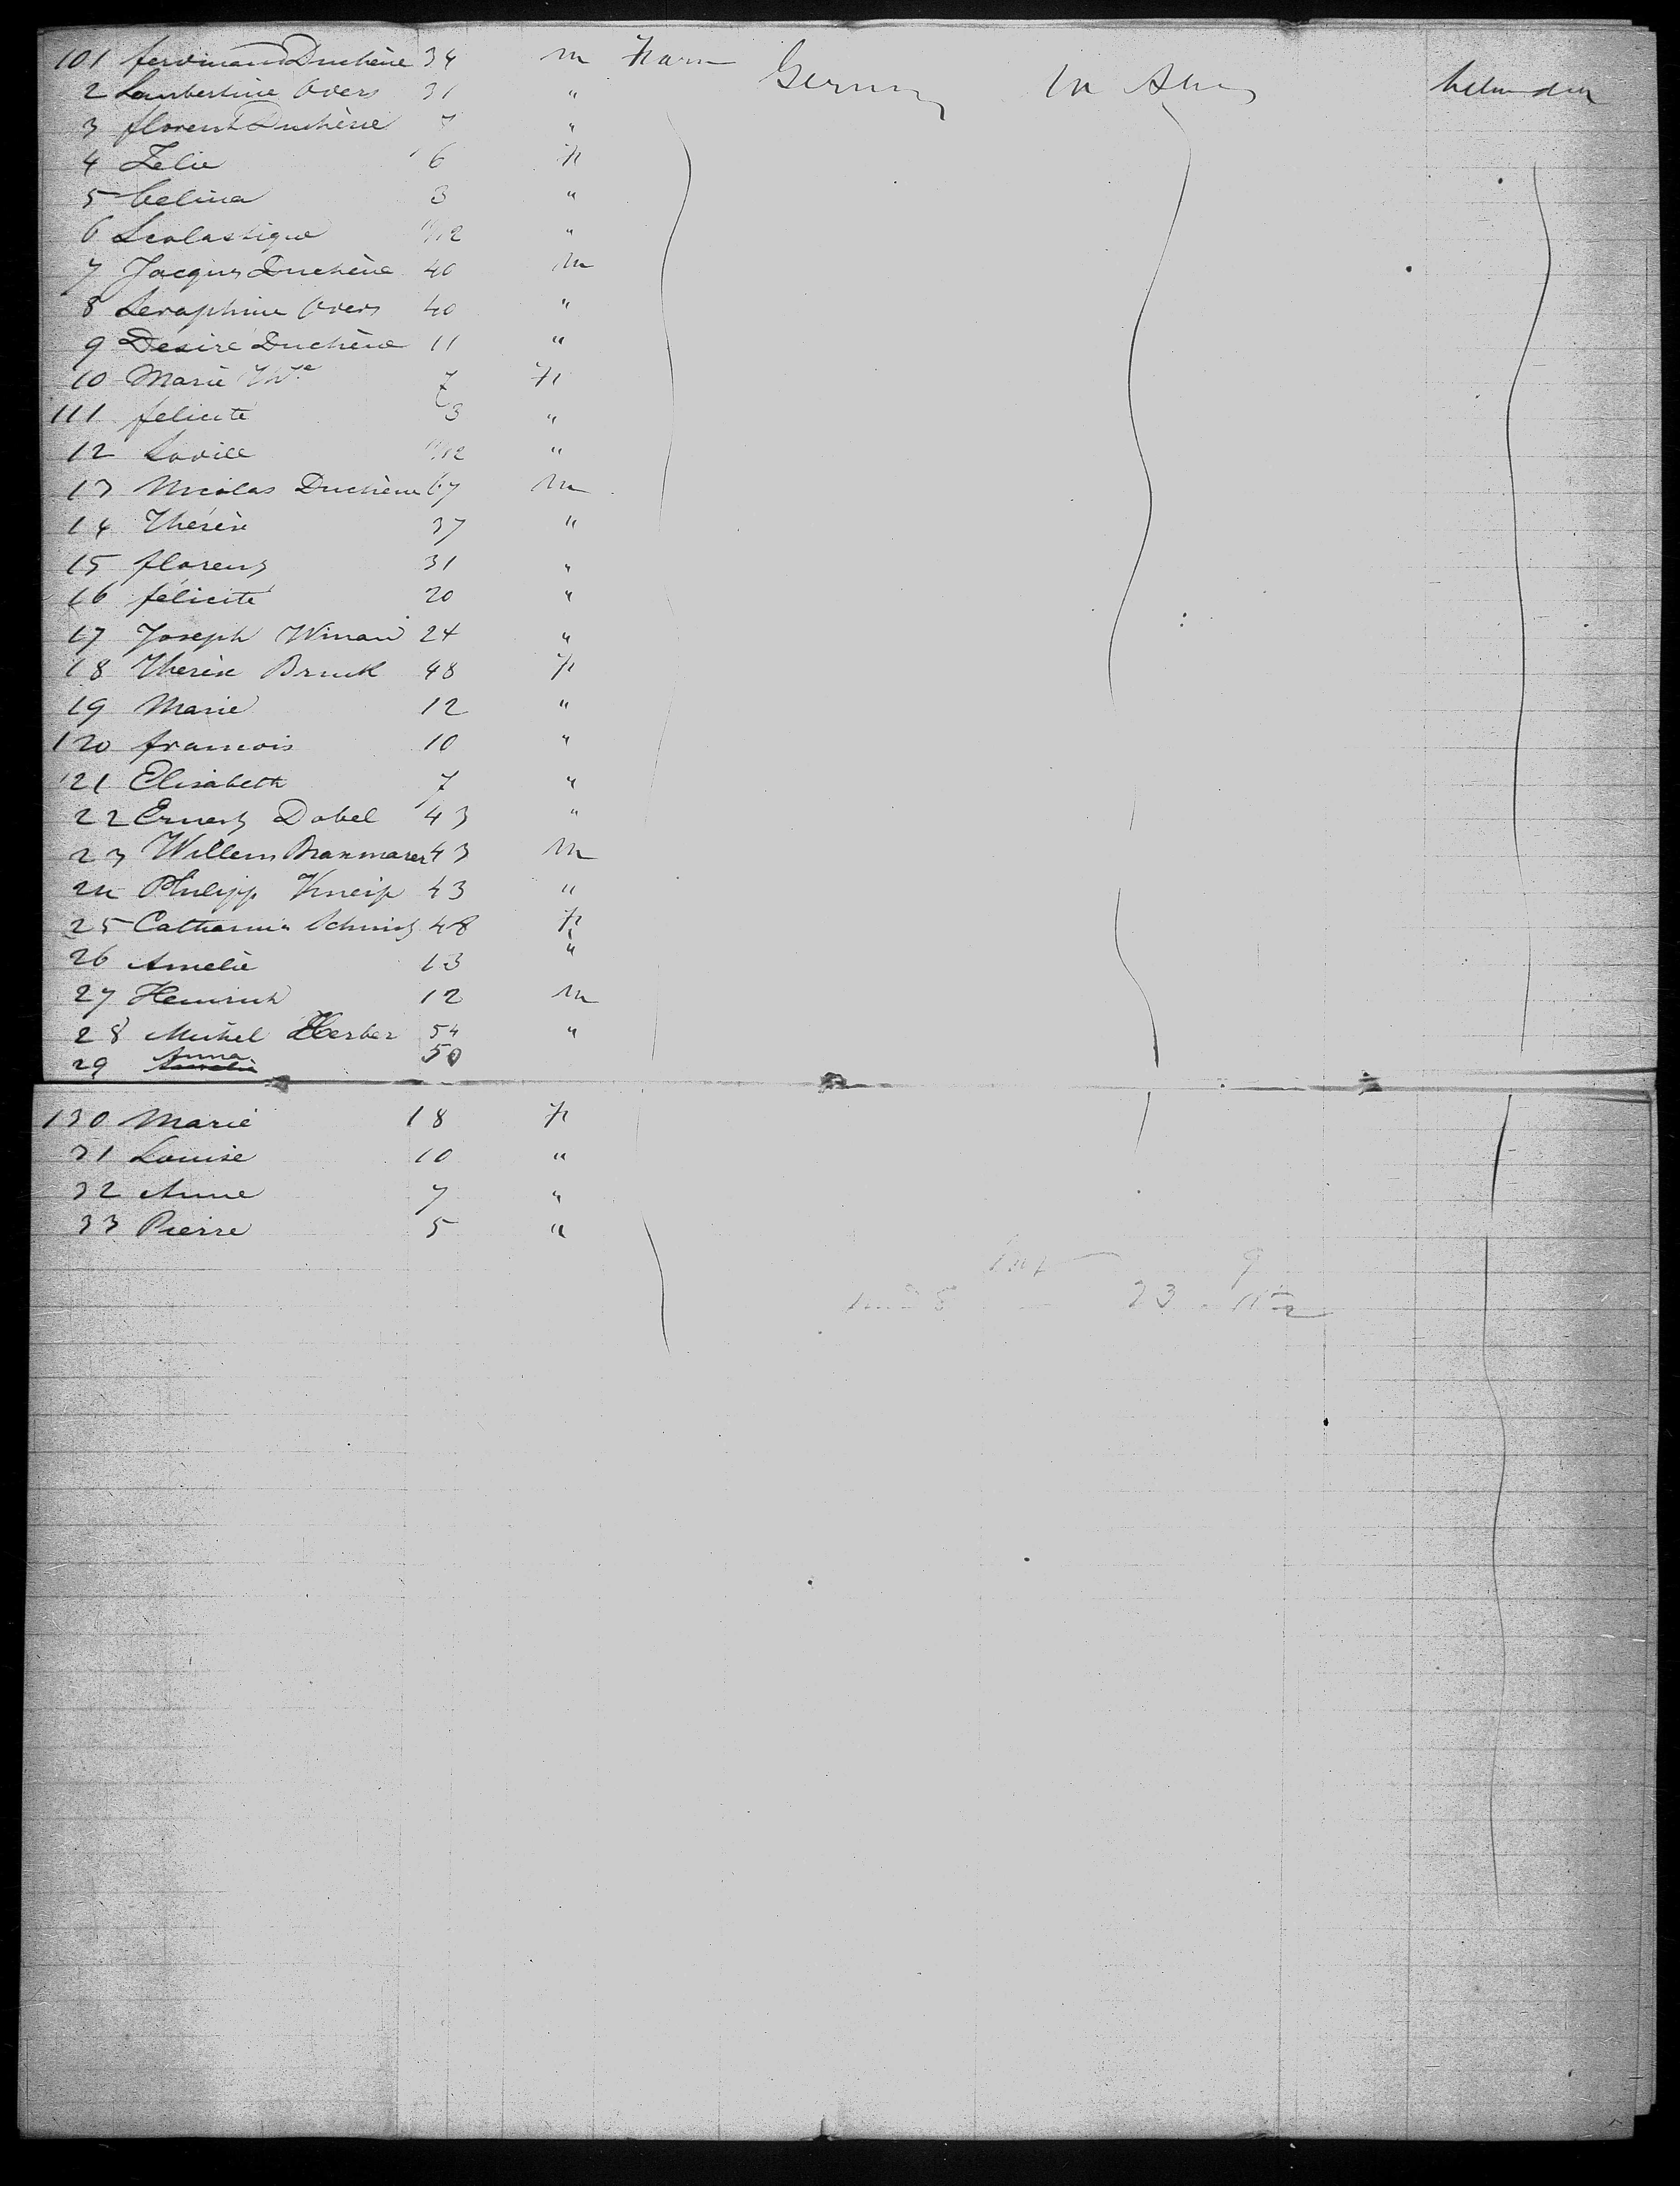 101 ferdinand Duchène 34 m Farm Germany In Am
2 Lambertine Overs 31 "
3 florent Duchène 7 "
4 Zelie 6 f
5 Celina 3 "
6 Scolastique 11/12 "
7 Jacques Duchène 40 m
8 Seraphine Overs 40 "
9 Desiré Duchène 11 "
10 Marie Th.e 7 f
111 felicité 3 "
12 11/12 "
13 Nicolas Duchène 67 m
14 Thérèse 37 "
15 florent 31 "
16 félicité 20 "
17 Joseph Winan 24 "
18 Therèse Bruck 48 f
19 Marie 12 "
120 francois 10 "
121 Elisabeth 7 "
22 Ernest Dobel 43 "
23 Willem 43 m
24 Philipp Kneip 43 "
25 Catharina Schmit 48 f
26 Amelie 13 "
27 Heinrich 12 m
28 Michel Herber 54 "
29 Anna 50
130 Marie 18 f
31 Louise 10 "
32 Anne 7 "
33 Pierre 5 "